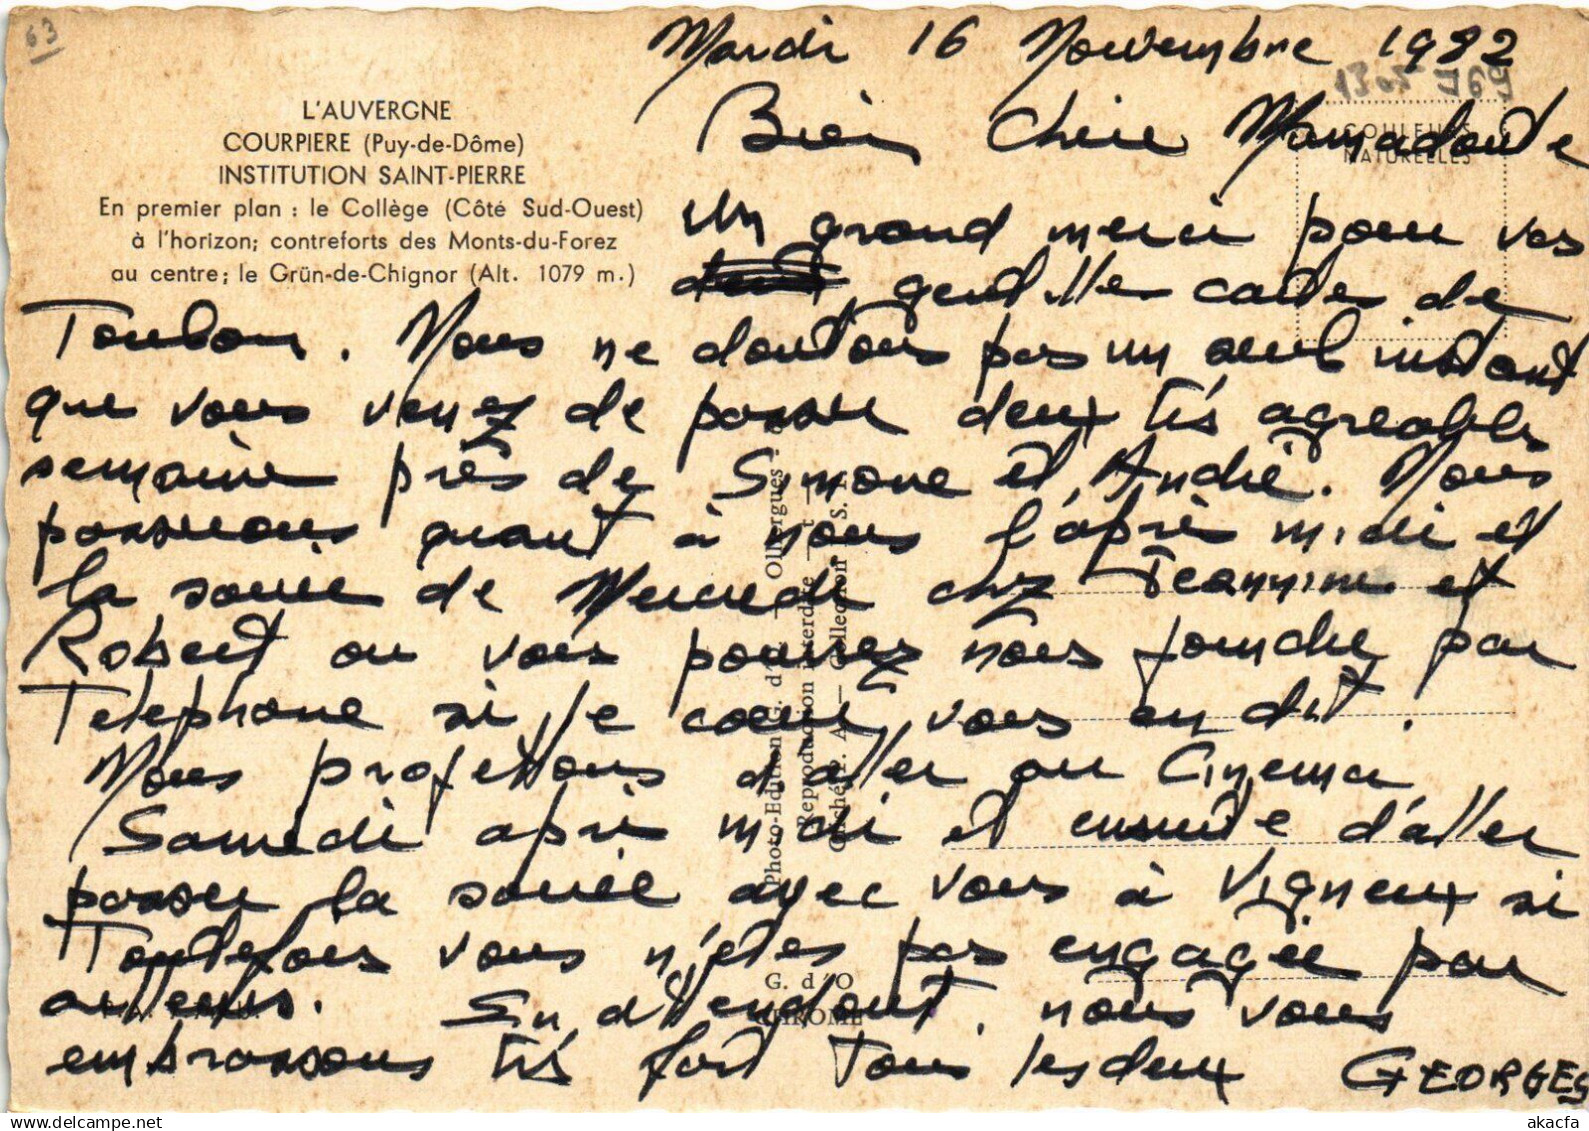 63
Mardi 16 Novembre 1982
L'AUVERGNE
COURPIERE (Puy-de-Dôme)
INSTITUTION SAINT-PIERRE
En premier plan : le Collège (Côté Sud-Ouest)
à l'horizon; contreforts des Monts-du-Forez
au centre; le Grün-de-Chignor (Alt. 1079 m.)
COULEURS
NATURELLES
Bien Chère Mamadoute
Un grand merci pour vos
gentilles cartes de
Toulon. Nous ne doutons pas un seul instant
que vous venez de passer deux très agreables
semaine près de Simone et André. Nous
passerons quant à nous l'après midi et
la soirée de Mercredi chez Jeannine et
Robert ou vous pouvez nous joindre par
Telephone si le coeur vous en dit.
Nous projettons d'aller au Cinema
Samedi après midi et ensuite d'aller
passer la soirée avec vous à Vigneux si
Toutefois vous n'êtes pas engagée par
ailleurs. En attendant, nous vous
embrassons très fort Tous les deux GEORGES
G. d'O
CHROME